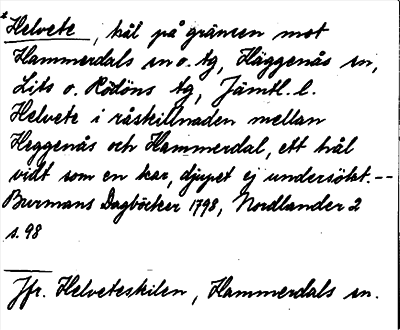 * Helvete, hål på gränsen mot
Hammerdals sn o. tg, Häggenås sn,
Lits o. Rödöns tg, Jämtl. l.
Helvete i råskillnaden mellan
Heggenås och Hammerdal, ett hål
vidt som en kar, djupet ej undersökt.--
Burmans Dagböcker 1798, Nordlander 2
s. 98
Jfr. Helveteskilen, Hammerdals sn.